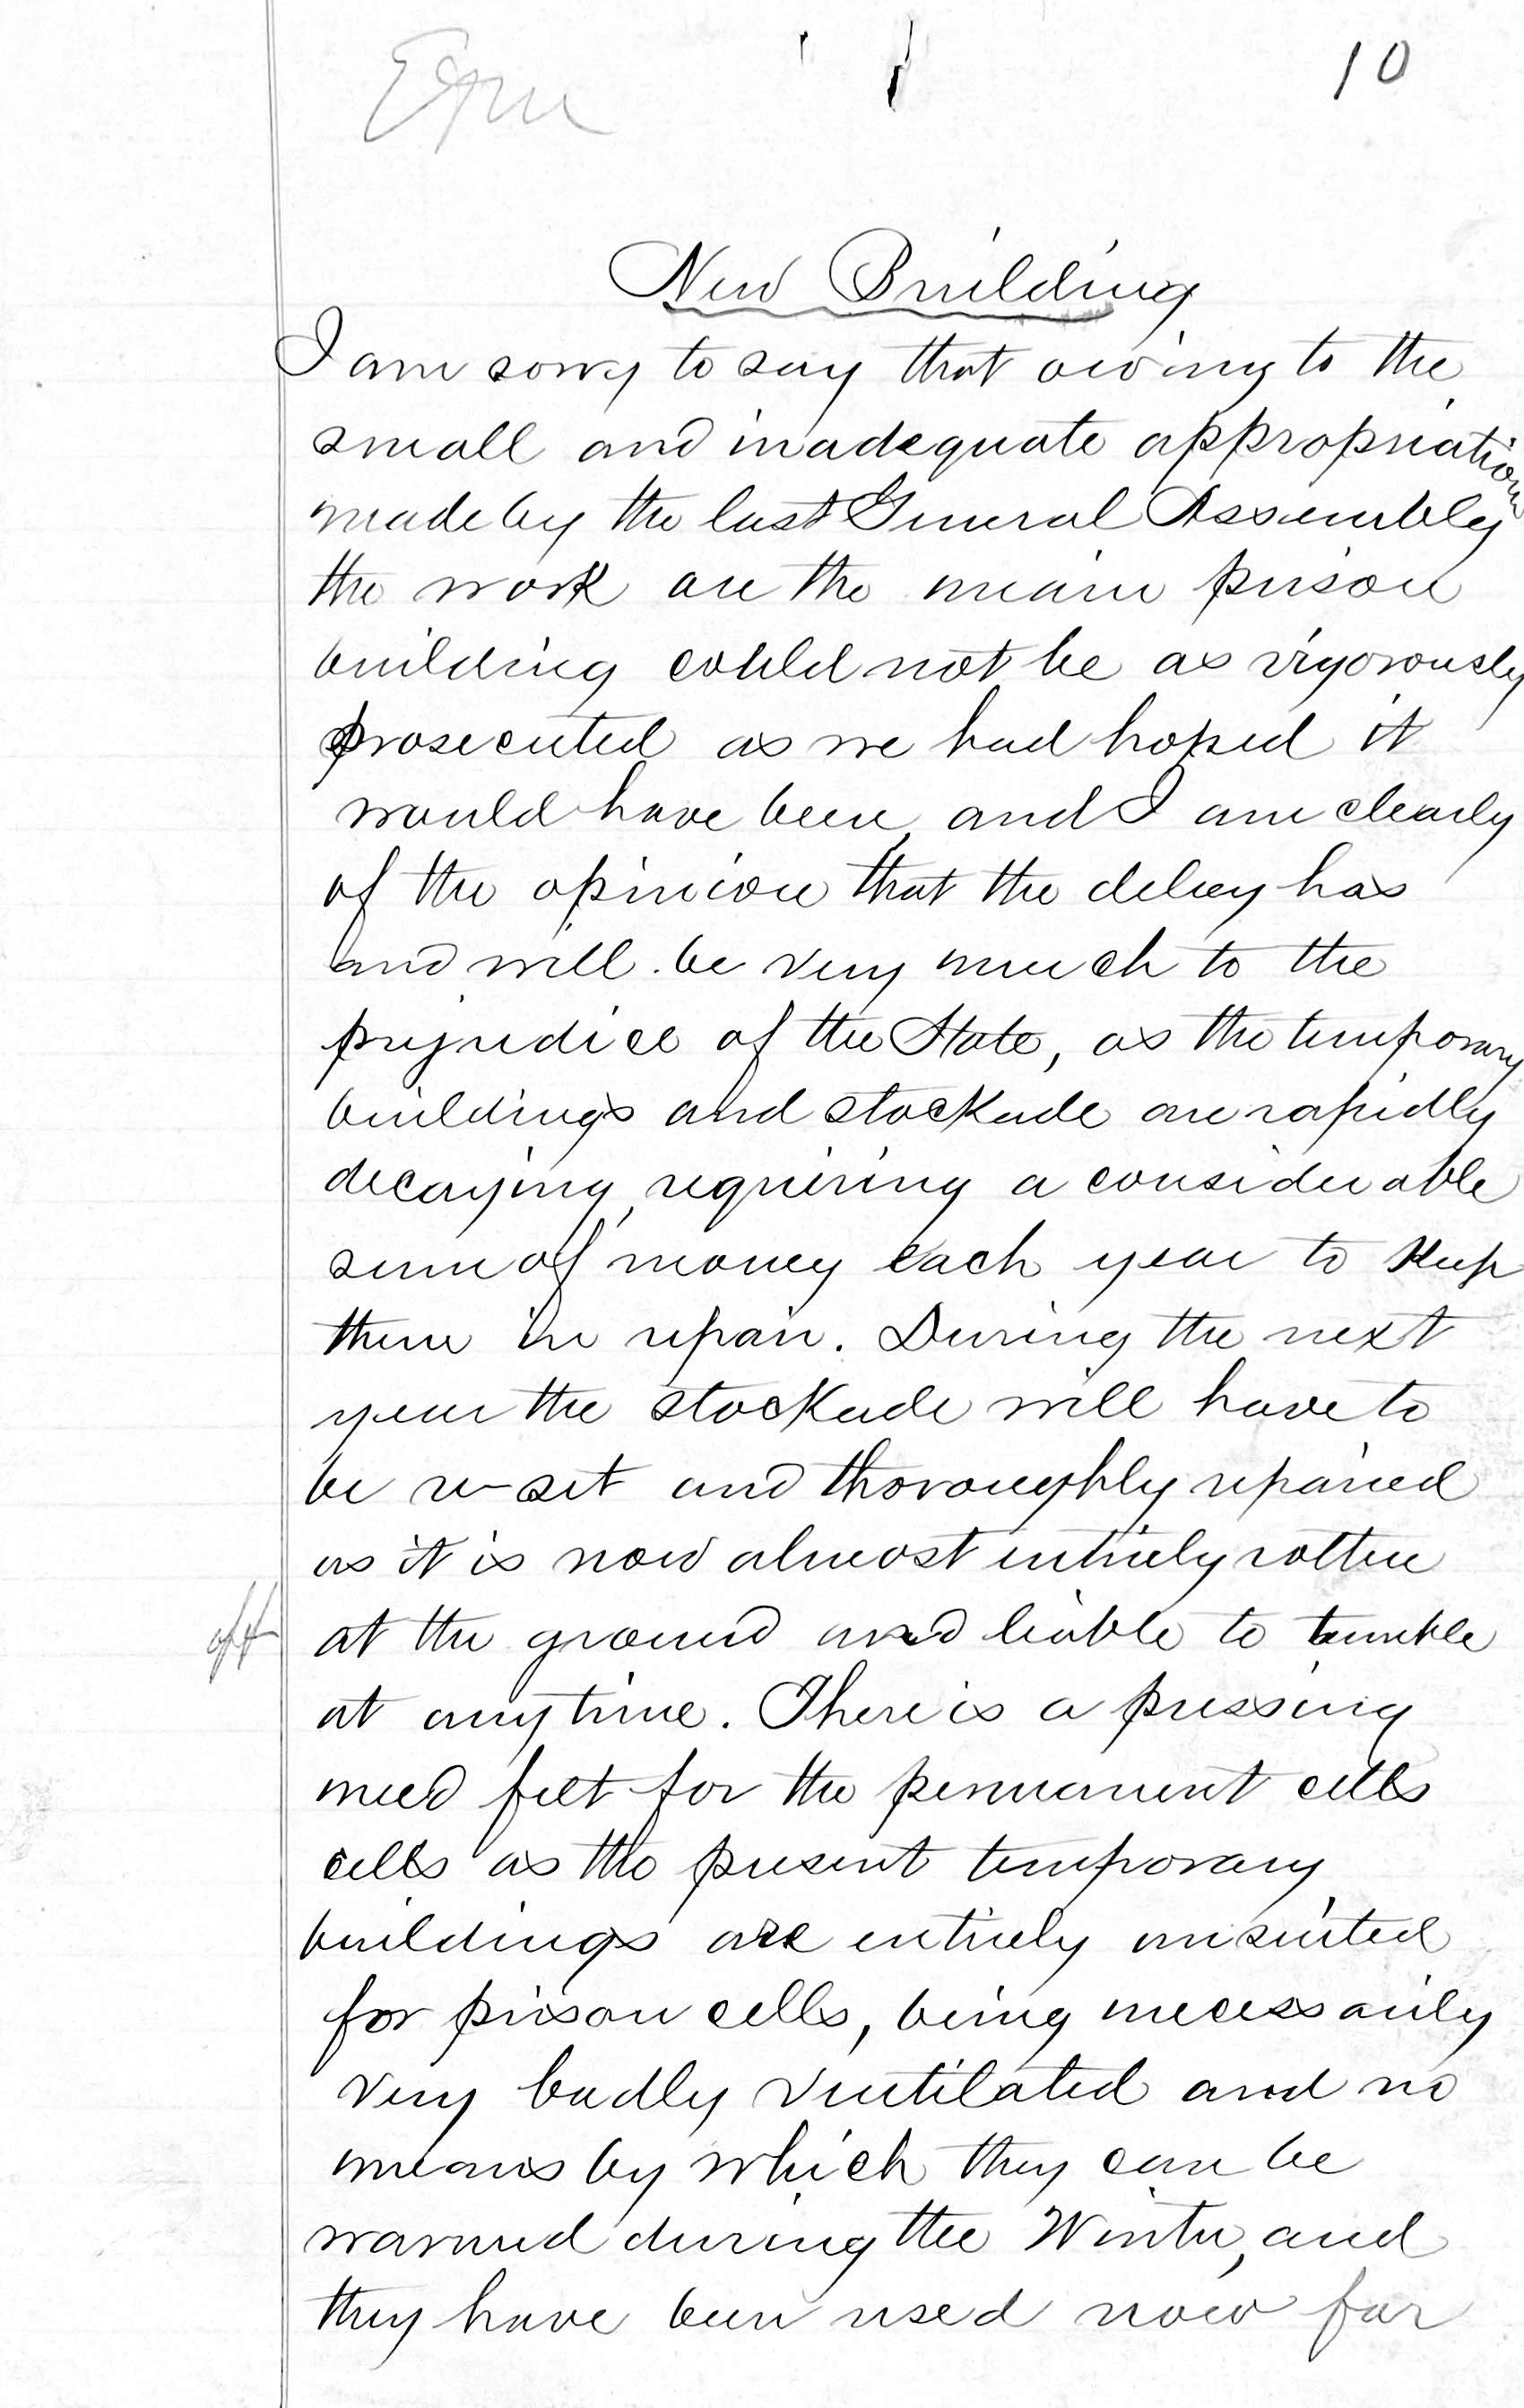 10
New Building
I am sorry to say that owing to the
small and inadequate appropriation
made by the last General Assembly
the work on the main prison
building could not be as vigorously
prosecuted as we had hoped it
would have been, and I am clearly
of the opinion that the delay has
and will be very much to the
prejudice of the State, as the temporary
buildings and stockade are rapidly
decaying, requiring a considerable
sum of money each year to keep
them in repair. During the next
year the stockade will have to
be re-set and thoroughly repaired
as it is now almost entirely rotten
at the ground and liable to tumble
at any time. There is a pressing
need felt for the permanent cells
cells as the present temporary
buildings are entirely unsuited
for prison cells, being necessarily
very badly ventilated and no
means by which they can be
warmed during the Winter, and
they have been used now for